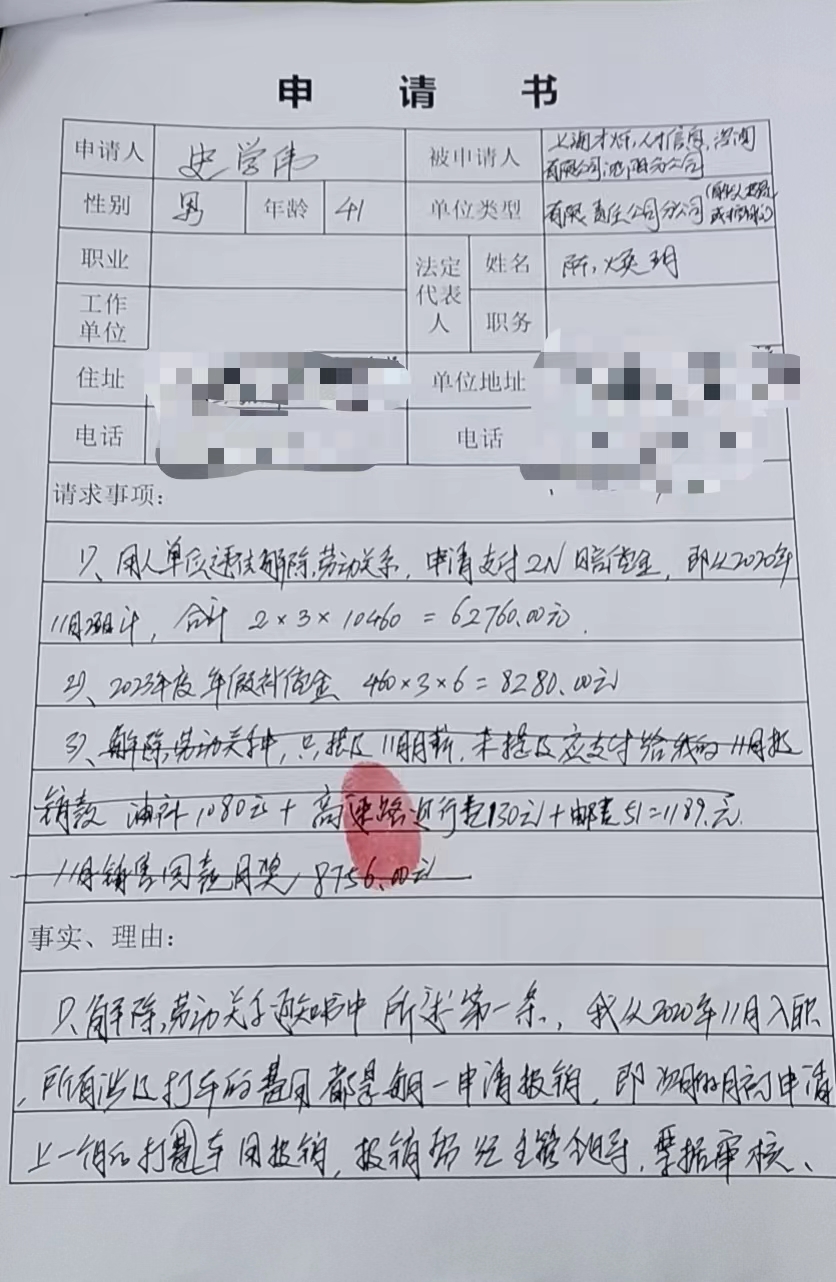 申 请 书
申请人 史学伟 被申请人 上海才烁人才信息咨询
有限公司沈阳分公司
性别 男 年龄 41 单位类型 有限责任公司分公司(自然人投资
或控股)
职业 法定代表人 姓名 所焕玥
工作单位 职务
住址 单位地址
电话 电话
请求事项:
1)、用人单位违法解除劳动关系,申请支付2N赔偿金,即从2020年
11月 计,合计 2×3×10460=62760.00元.
2)、2023年度年假补偿金 460×3×6=8280.00元
3)、解除劳动关系中,只提及11月月薪,未提及应支付给我的11月报
销款 油补1080元+高速路通行费130元+邮费51=1189.元.
11月销售回款月奖 8756.00元
事实、理由:
1)、解除劳动关系通知书中所述第一条,我从2020年11月入职
,所有涉及打车的费用都是每月一申请报销,即 申请
上一个月的打 车 报销,报销都经主管领导,票据审核、